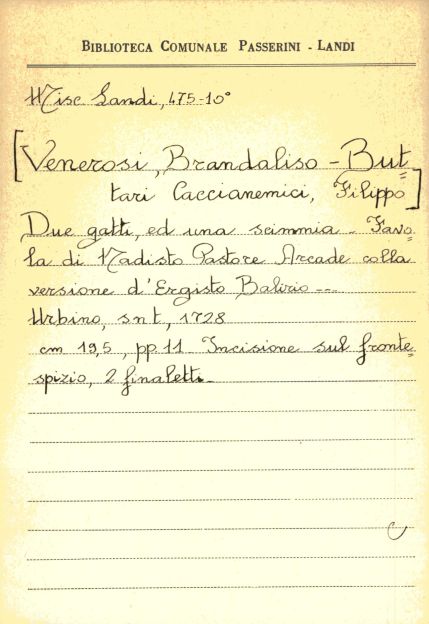 BIBLIOTECA COMUNALE PASSERINI - LANDI
Misc Landi, 475-10°
[Venerosi, Brandaliso - But=
tari Caccianemici, Filippo]
Due gatti, ed una scimmia - Favo=
la di Nadisto Pastore Arcade colla
versione d'Ergisto Balirio ---
Urbino, s n t, 1728
cm 19,5, pp 11 Incisione sul fronte=
spizio, 2 finaletti -